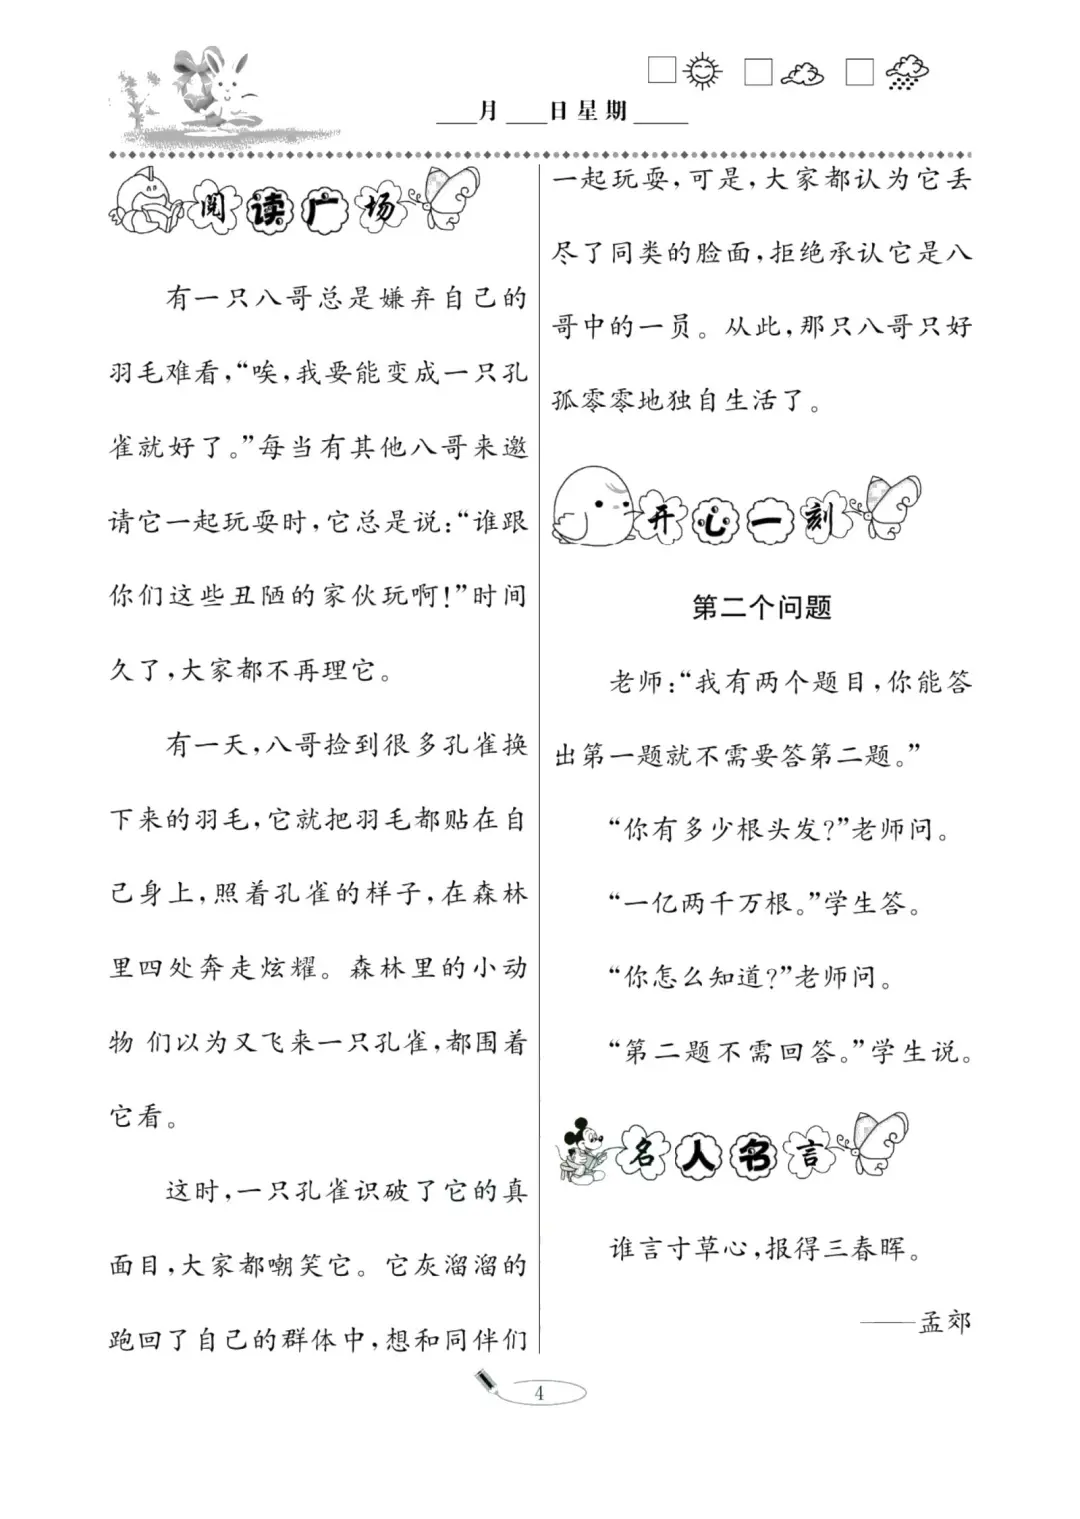 月 日星期
阅读广场
有一只八哥总是嫌弃自己的
羽毛难看,“唉,我要能变成一只孔
雀就好了。”每当有其他八哥来邀
请它一起玩耍时,它总是说:“谁跟
你们这些丑陋的家伙玩啊!”时间
久了,大家都不再理它。
有一天,八哥捡到很多孔雀换
下来的羽毛,它就把羽毛都贴在自
己身上,照着孔雀的样子,在森林
里四处奔走炫耀。森林里的小动
物 们以为又飞来一只孔雀,都围着
它看。
这时,一只孔雀识破了它的真
面目,大家都嘲笑它。它灰溜溜的
跑回了自己的群体中,想和同伴们
一起玩耍,可是,大家都认为它丢
尽了同类的脸面,拒绝承认它是八
哥中的一员。从此,那只八哥只好
孤零零地独自生活了。
开心一刻
第二个问题
老师:“我有两个题目,你能答
出第一题就不需要答第二题。”
“你有多少根头发?”老师问。
“一亿两千万根。”学生答。
“你怎么知道?”老师问。
“第二题不需回答。”学生说。
名人名言
谁言寸草心,报得三春晖。
——孟郊
4